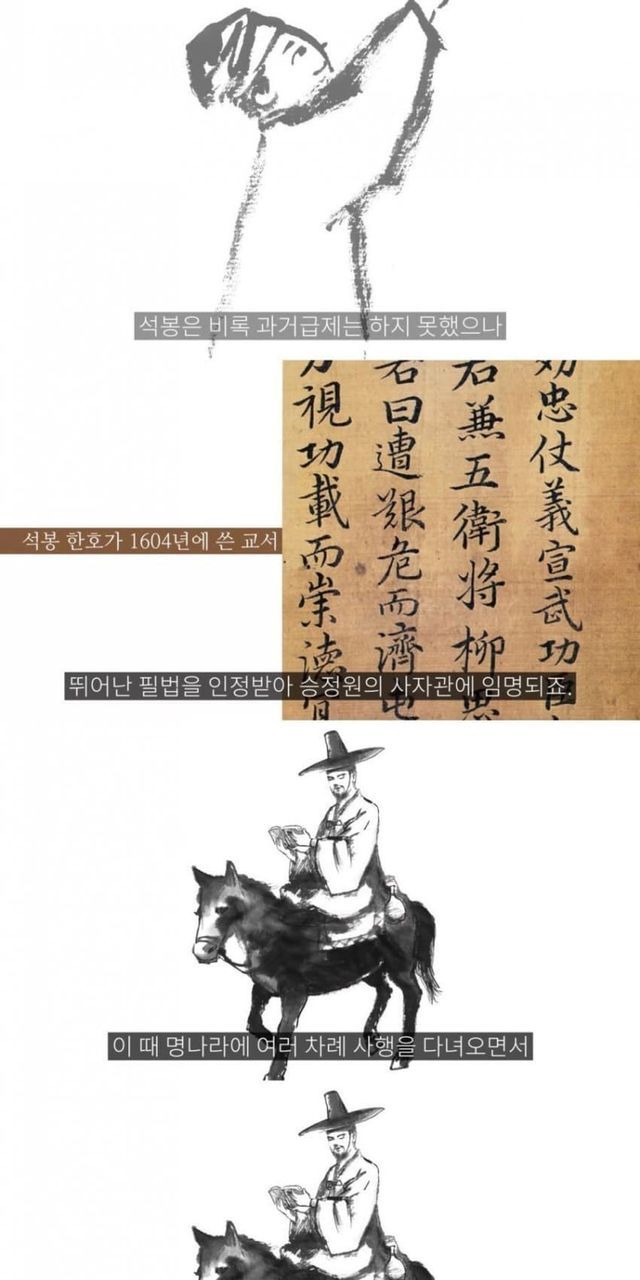 석봉은 비록 과거급제는 하지 못했으나
忠仗義宣武功臣
君兼五衛將柳思
若曰遭艱危而濟屯
視功載而崇德
석봉 한호가 1604년에 쓴 교서
뛰어난 필법을 인정받아 승정원의 사자관에 임명되죠.
이 때 명나라에 여러 차례 사행을 다녀오면서